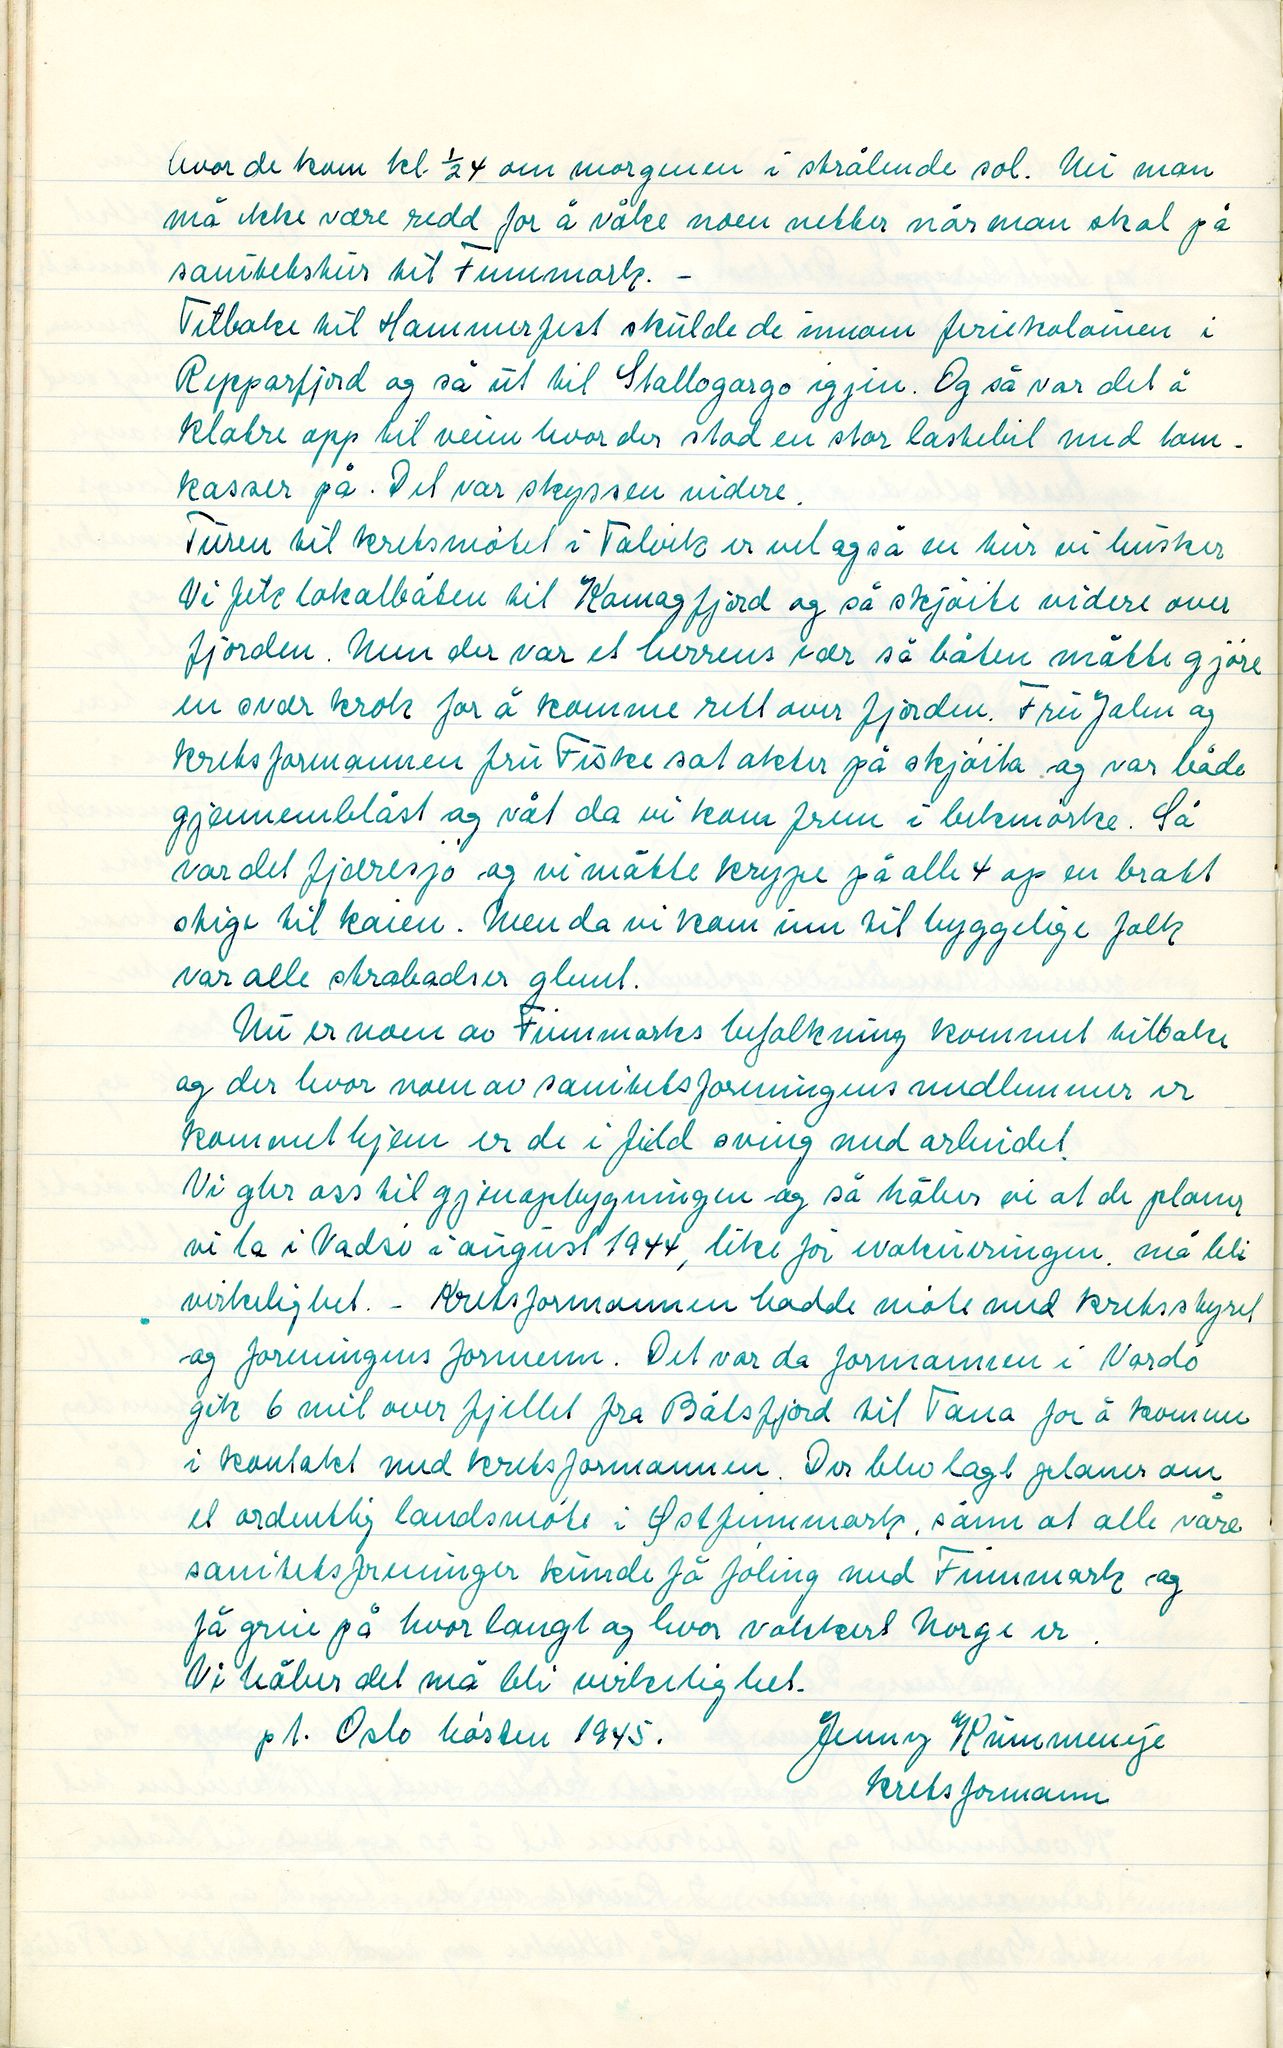 hvor de kom kl. ½4 om morgenen i strålende sol. Nei man
må ikke være redd for å våke noen netter når man skal på
sanitetstur til Finnmark. -
Tilbake til Hammerfest skulde de innom feriekoloinen i
Repparfjord og så ut til Stallogargo igjen. Og så var det å
klatre opp til veien hvor der stod en stor lastebil med tom-
kasser på. Det var skyssen videre.
Turen til kretsmötet i Talvik er vel også en tur vi husker
Vi fikk lokalbåten til Komagfjord og så skjöite videre over
fjorden. Men der var et herrens vær så båten måtte gjöre
en svær krok for å komme rett over fjorden. Fru Jalen og
kretsformannen fru Fiske sat akter på skjöita og var både
gjennemblåst og våt da vi kom frem i bekmörke. Så
var det fjæresjö og vi måtte krype på alle 4 op en bratt
stige til kaien. Men da vi kom inn til hyggelige folk
var alle strabadser glemt.
Nu er noen av Finnmarks befolkning kommet tilbake
og der hvor noen av sanitetsforeningens medlemmer er
kommet hjem er de i full sving med arbeidet.
Vi gler oss til gjenopbygningen og så håber vi at de planer
vi la i Vadsö i august 1944, like för evakueringen, må bli
virkelighet. - Kretsformannen hadde möte med kretsstyret
og foreningens formenn. Det var da formannen i Vardö
gik 6 mil over fjellet fra Båtsfjord til Tana for å komme
i kontakt med kretsformannen. Der blev lagt planer om
et ordentlig landsmöte i Østfinnmark, sånn at alle våre
sanitetsforeninger kunde få föling med Finnmark og
få greie på hvor langt og hvor vakkert Norge er.
Vi håber det må bli virkelighet.
pt. Oslo hösten 1945. Jenny Kummeneje
kretsformann